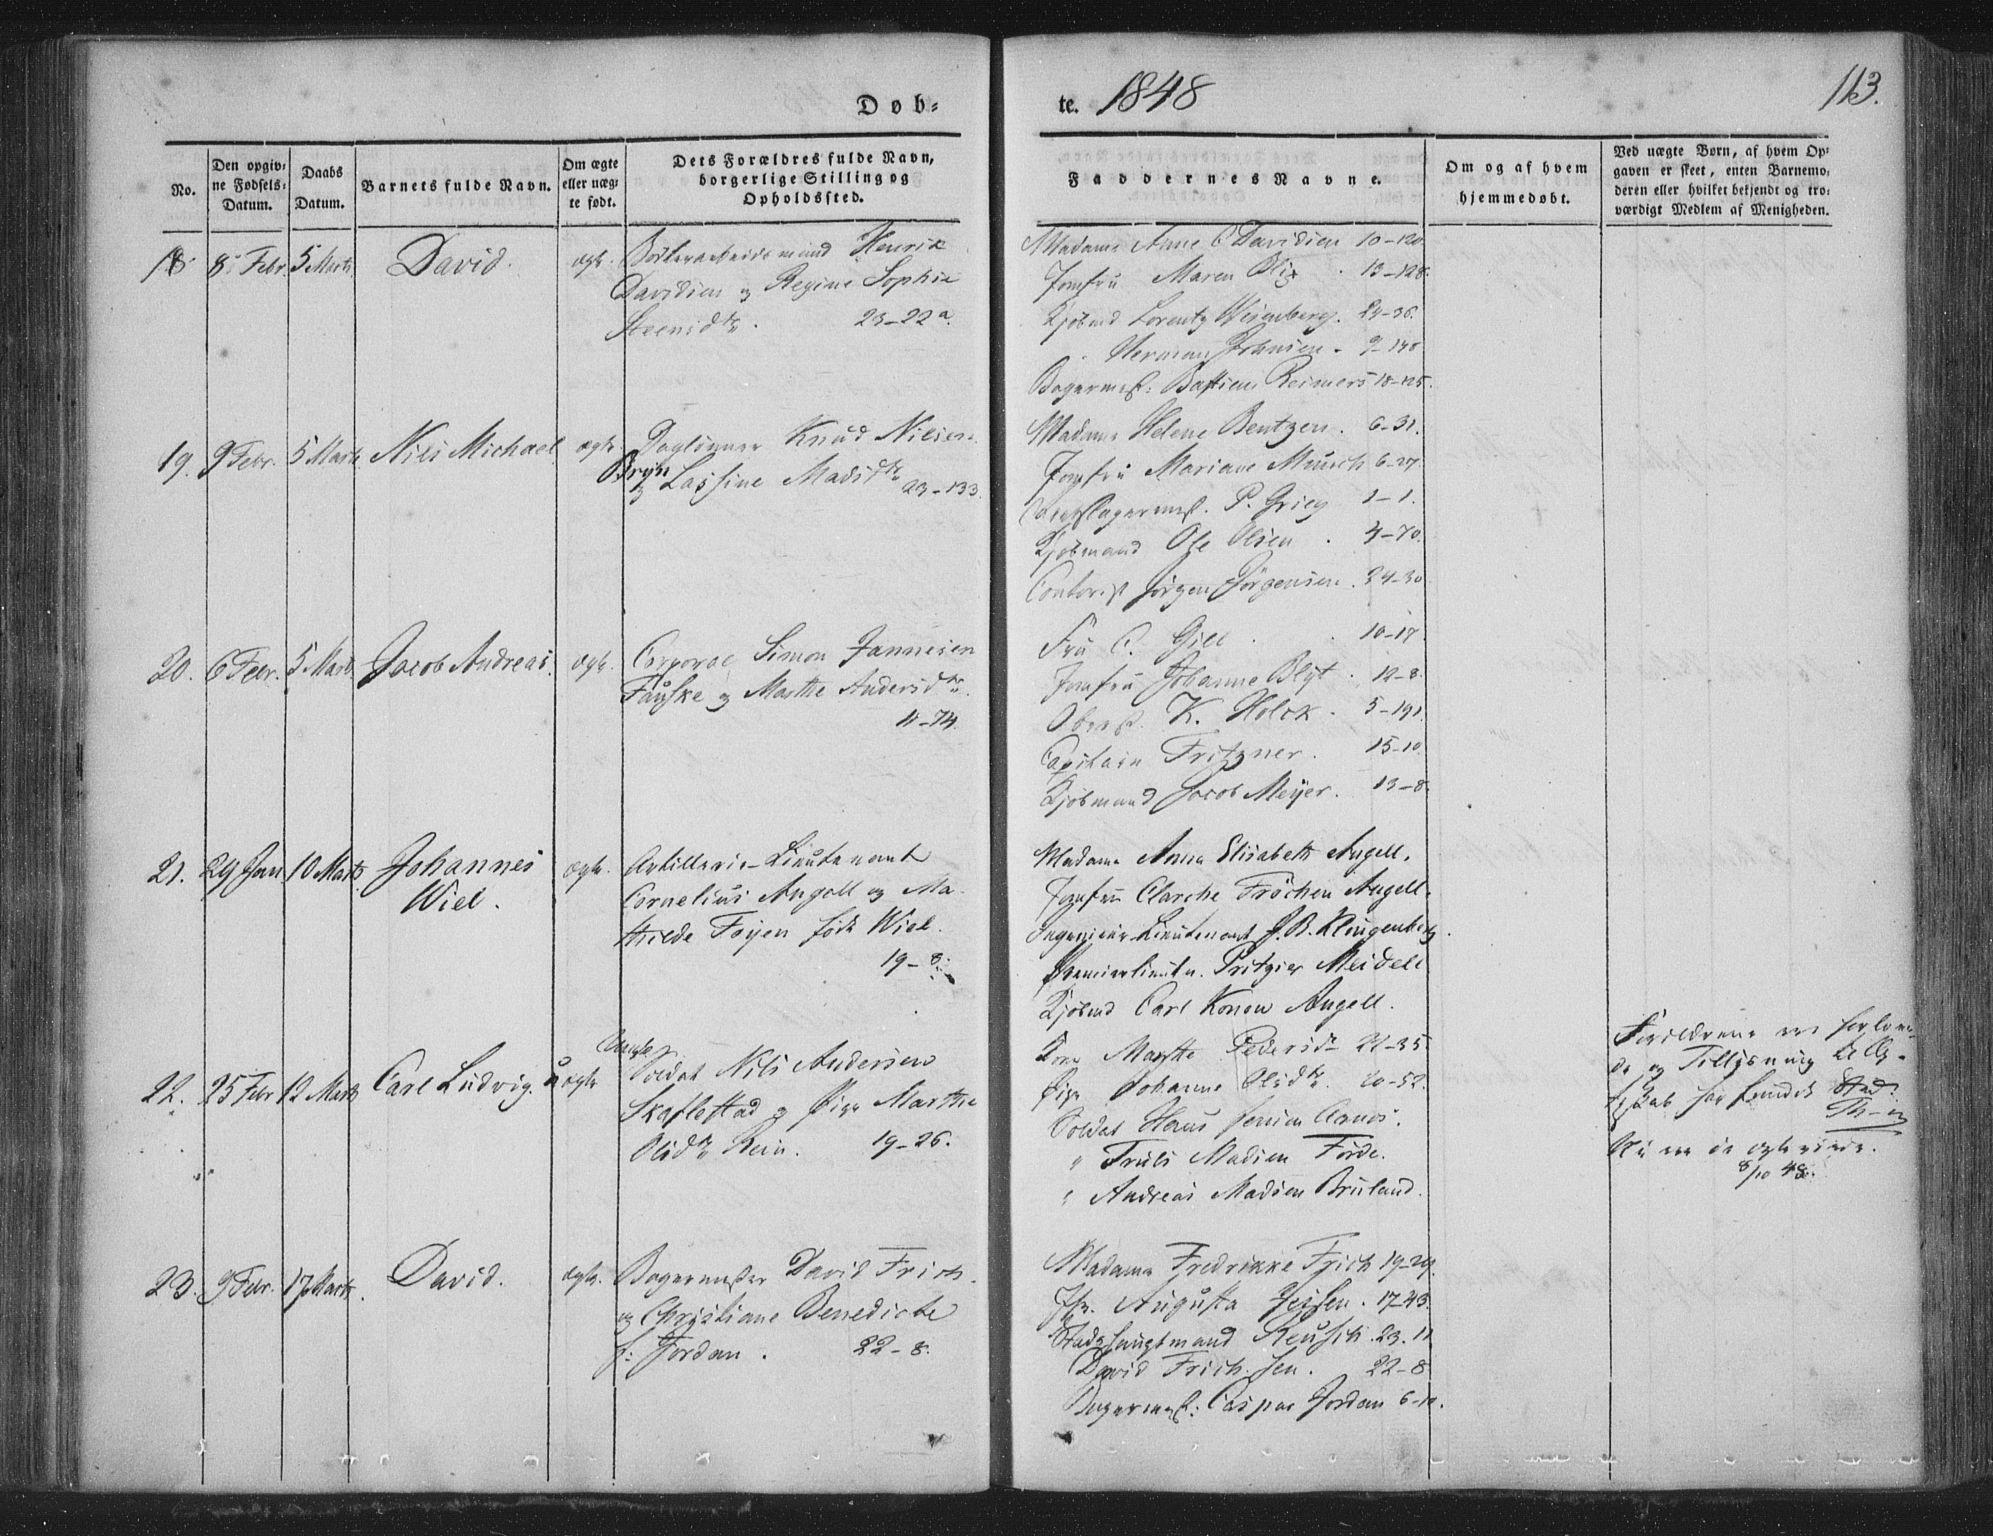 Døb-
te. 1848
113.
No.
Den opgiv-
ne Fødsels-
Datum.
Daabs
Datum.
Barnets fulde Navn.
Om ægte
eller uæg-
te født.
Dets Forældres fulde Navn,
borgerlige Stilling og
Opholdssted.
Faddernes Navne.
Om og af hvem
hjemmedøbt.
Ved uægte Børn, af hvem Op-
gaven er skeet, enten Barnemo-
deren eller hvilket bekjendt og tro-
værdigt Medlem af Menigheden.
18. 8 Febr. 5 Marts David. ægte.
Henrik
Davidsen og Regine Sophie
Steensdtr. 23-22a.
Madame Anne C Davidsen 10-120
Jomfru Maren Blix. 13-128.
Kjøbmd Lorentz Wesenberg. 24-36.
Herman Johnsen. 9-140
Bagermest: Bastian Reimers 18-125.
19. 9 Febr. 5 Marts Nils Michael ægte.
Daglønner Knud Nilsen
Bryn
og Lassine Madsdtr 23-133.
Madame Helene Bentzen. 6-31.
Jomfru Mariane Munch 6-27.
P. Grieg 1-1.
Kjøbmand Ole Olsen. 4-70.
Contorist Jørgen Jørgensen. 24-30
20. 6 Febr. 5 Marts Jacob Andreas. ægte.
Corporal Simon Jannesen
Fauske og Marthe Andersdtr.
11-74.
Fru C. Gill. 10-17
Jomfru Johanne Blyt. 12-8.
Oberst K. Holck. 5-191.
Capitain Fritzner. 15-10.
Kjøbmand Jacob Meyer. 13-8.
21. 29 Jan 10 Marts Johannes
Wiel.
ægte.
Artillerie-Lieutenant
Cornelius Angell og Ma-
thilde Foyen født Wiel.
19-8.
Madame Anna Elisabeth Angell.
Jomfru Clarche Frøchen Angell.
Ingenieur-Lieutenant J. B. Klingenberg.
Premierlieutn. Pritzier Meidell
Kjøbmd Carl Konow Angell.
22. 25 Febr 12 Marts Carl Ludvig. uægte
Soldat Nils Andersen
Skaflestad og Pige Marthe
Olsdtr Rein. 19-26.
Kone Marthe Pedersdtr 21-35.
Pige Johanne Olsdtr. 20-52.
Soldat Hans Jensen
" Truls Madsen Førde.
" Andreas Madsen Bruland.
Forældrene ere forlove-
de og Tillysning
Nu ere de ægteviede.
8/10 48.
23. 9 Febr. 17 Marts. David. ægte.
Bagermester David Frich
og Christiane Benedicte
f: Jordan. 22-8.
Madame Fredrikke Frich 19-29.
Jfr. Augusta Jessen. 17-43.
Stadshauptmand Reusch. 23.11
David Frich sen. 22-8
Bagermest: Caspar Jordan 6-10.